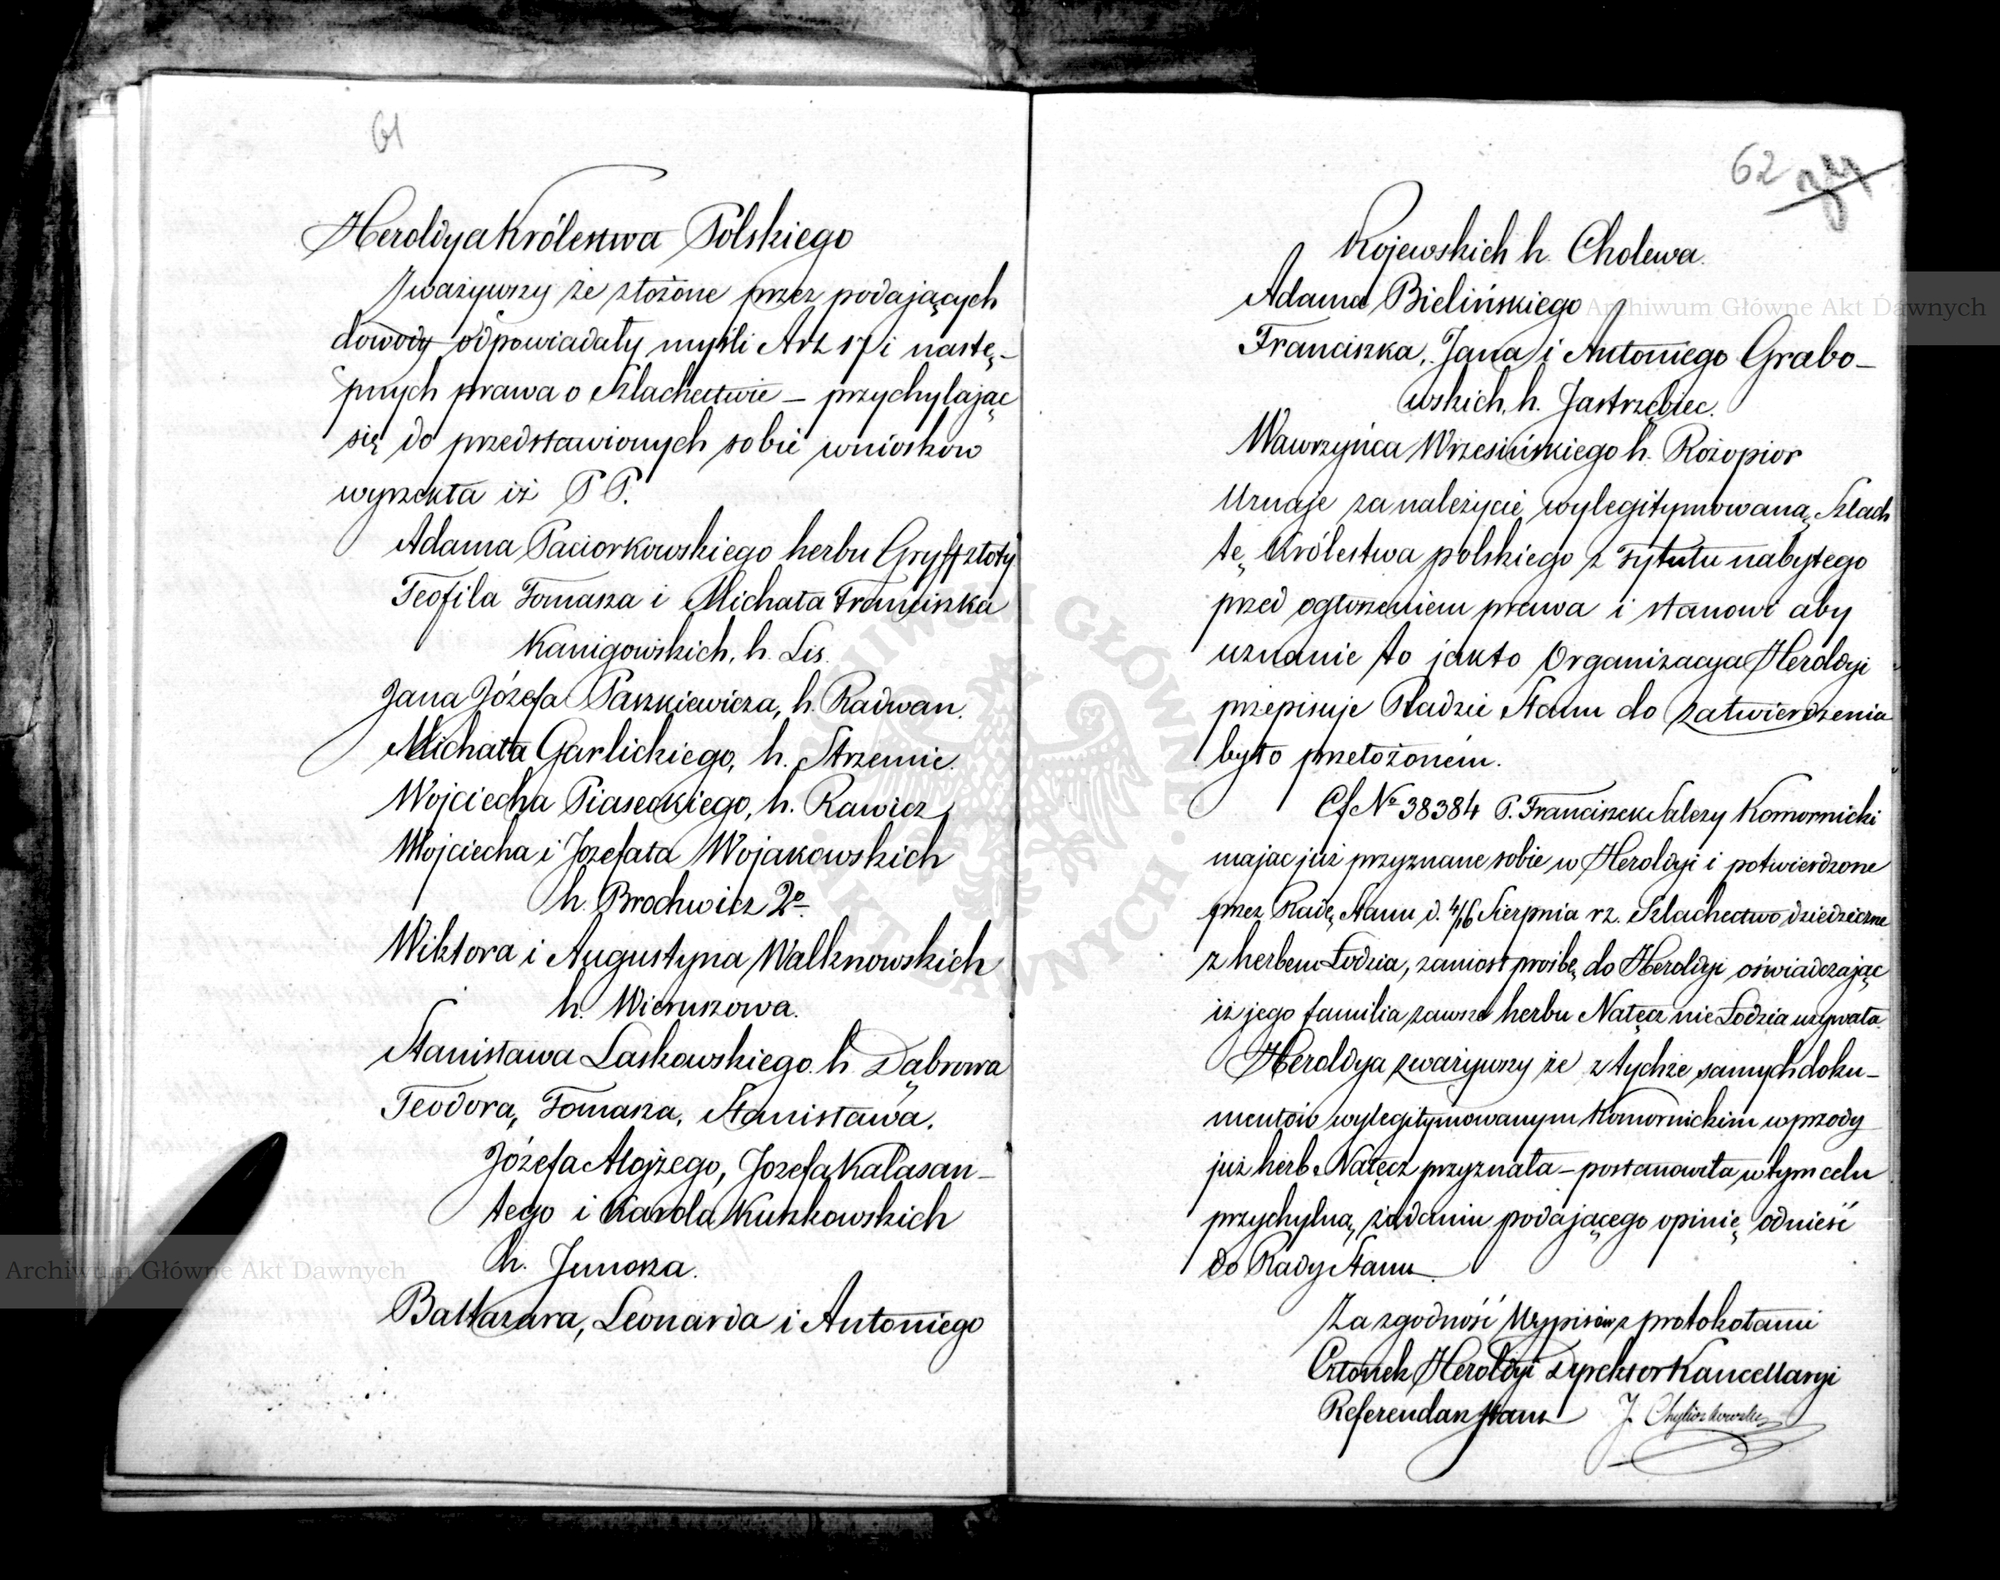 61
Heroldya Królestwa Polskiego
Zważywszy że złożone przez podających
dowody odpowiadały myśli Art 17 i nastę-
pnych prawa o Szlachectwie – przychylając
się do przedstawionych sobie wniosków
wyrzekła iż P P.
Adama Paciorkowskiego herbu Gryff złoty
Teofila Tomasza i Michała Franciszka
Kanigowskich, h. Lis.
Jana Józefa Paszkiewicza, h. Radwan.
Michała Garlickiego, h. Strzemie.
Wojciecha Piaseckiego, h. Rawicz
Wojciecha i Jozefata Wojakowskich
h. Brochwicz 2º.
Wiktora i Augustyna Walknowskich
h. Wieruszowa.
Stanisława Laskowskiego h. Dąbrowa
Teodora, Tomasza, Stanisława,
Józefa Alojzego, Jozefa Kalasan-
tego i Karola Kuszkowskich
h. Junosza.
Baltazara, Leonarda i Antoniego
62 74
Kojewskich h. Cholewa.
Adama Bielińskiego
Franciszka, Jana i Antoniego Grabo-
wskich, h. Jastrzębiec.
Wawrzyńca Wrzesińskiego h. Rożopior
Uznaje za należycie wylegitymowaną Szlach
tę Królestwa polskiego z tytułu nabytego
przed ogłoszeniem prawa i stanowi aby
uznanie to jakto Organizacya Heroldyi
przepisuje Radzie Stanu do zatwierdzenia
było przełożoném.
Cf Nº 38384 P. Franciszek Salezy Komornicki
mając już przyznane sobie w Heroldyi i potwierdzone
przez Radę Stanu d. 4/16 Sierpnia r z. Szlachectwo dziedziczne
z herbem Łodzia, zaniosł prośbę do Heroldyi oświadczając
iż jego familia zawsze herbu Nałęcz nie Łodzia używała.
Heroldya zważywszy że z tychże samych doku-
mentów wylegitymowanym Komornickim wprzódy
już herb Nałęcz przyznała – postanowiła w tym celu
przychylną żądaniu podającego opinię odnieść
do Rady Stanu
Za zgodność Wypisów z protokołami
Członek Heroldyi Dyrektor Kancellaryi
Referendarz Stanu J. Chyliczkowski
Archiwum Główne Akt Dawnych
Archiwum Główne Akt Dawnych
ARCHIWUM GŁÓWNE AKT DAWNYCH